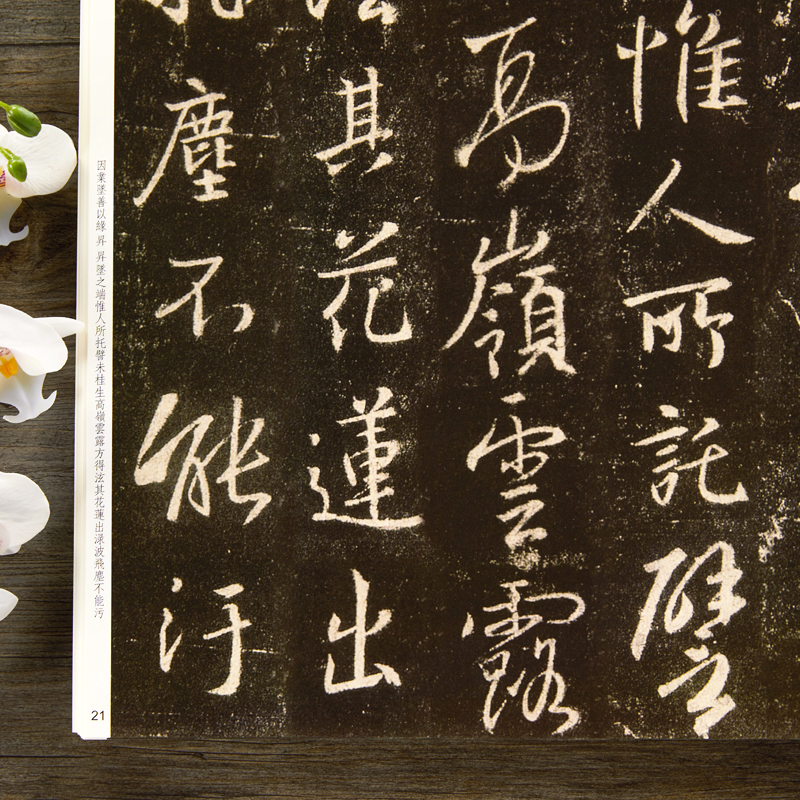 惟人所託譬
高嶺雲露
其花蓮出
塵不能汙
因業墜善以緣昇昇墜之端惟人所托譬未桂生高嶺雲露方得泫其花蓮出淥波飛塵不能污
21